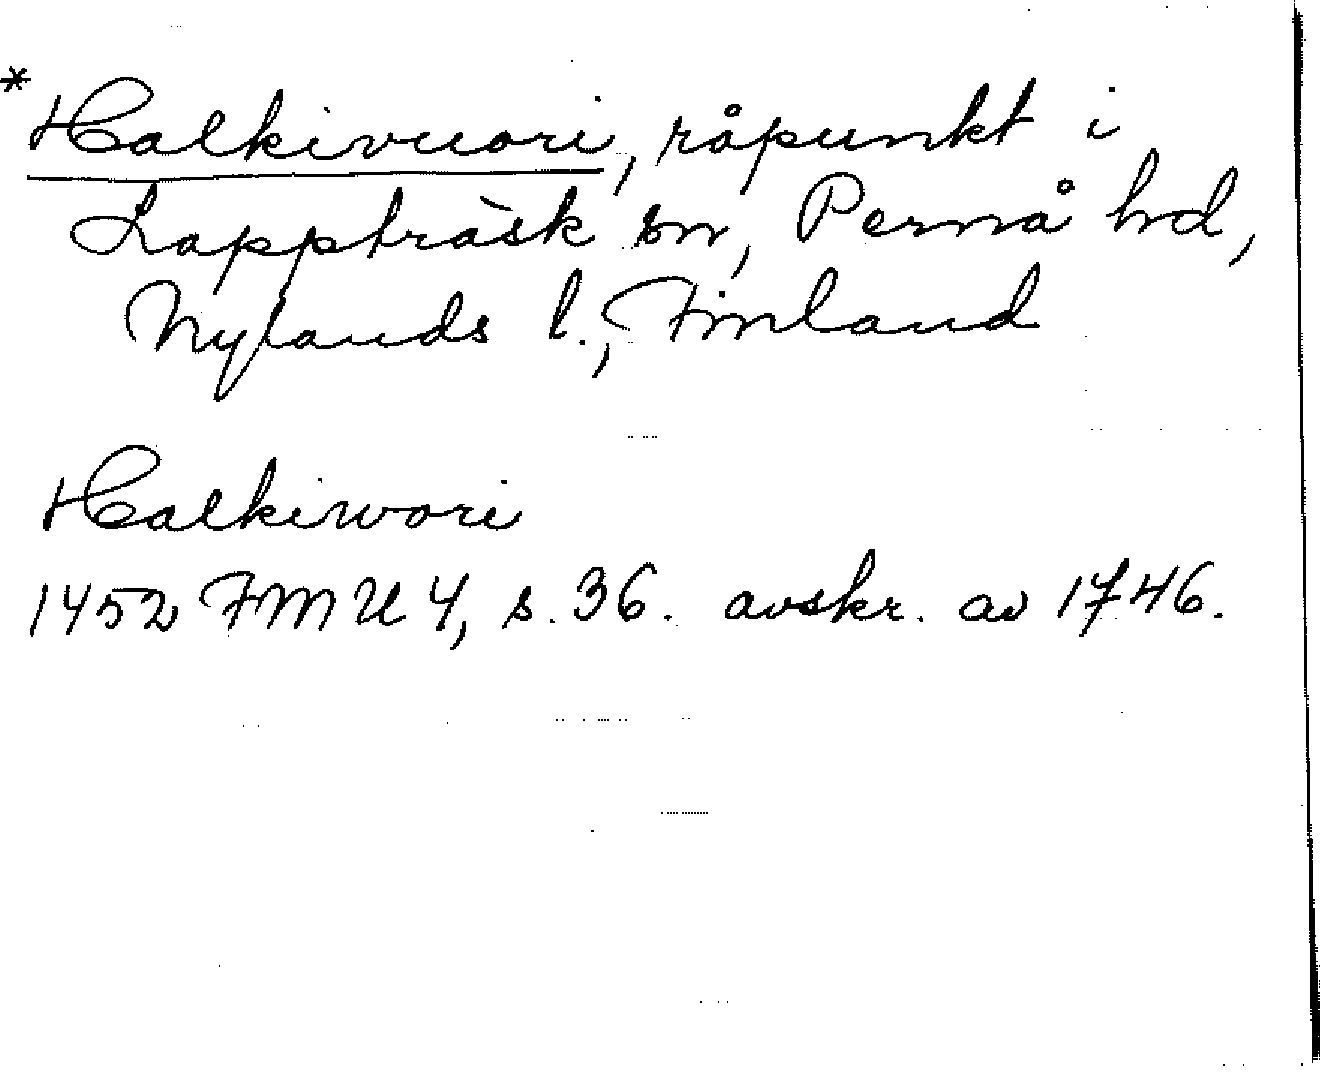 * Halkivuori, råpunkt i
Lappträsk sn, Pernå hd,
Nylands l., Finland
Halkiwori
1452 FMU 4, s. 36. avskr. av 1746.